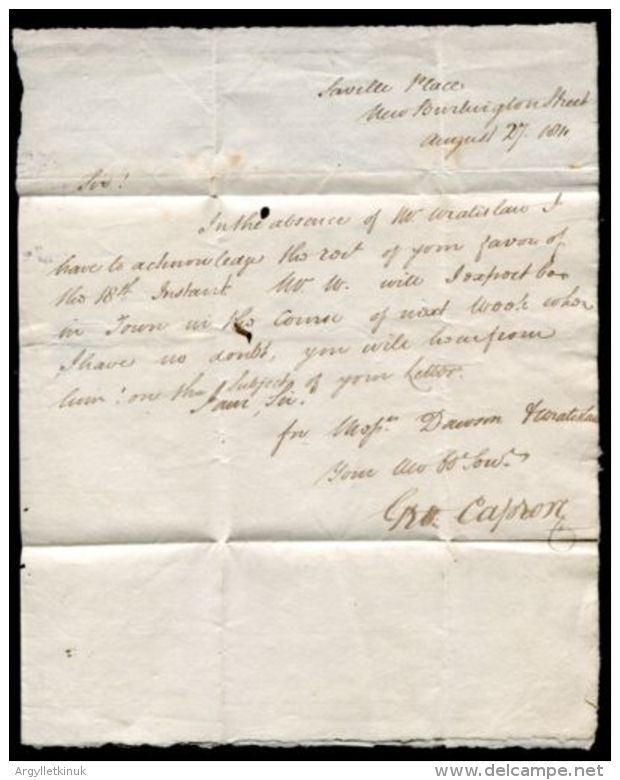 Saville Place
New Burlington Street
August 27. 1811
Sir!
In the absence of Mr Wratislaw I
have to acknowledge the rect of your favor of
the 18th Instant Mr W. will I expect be
in Town in the Course of next Week when
I have no doubt, you will hear from
him on the Subject of your Letter.
I am, Sir
for Messrs Dawson & Wratislaw
Your mo obt Servt
Geo. Capron
Argylletkinuk
www.delcampe.net